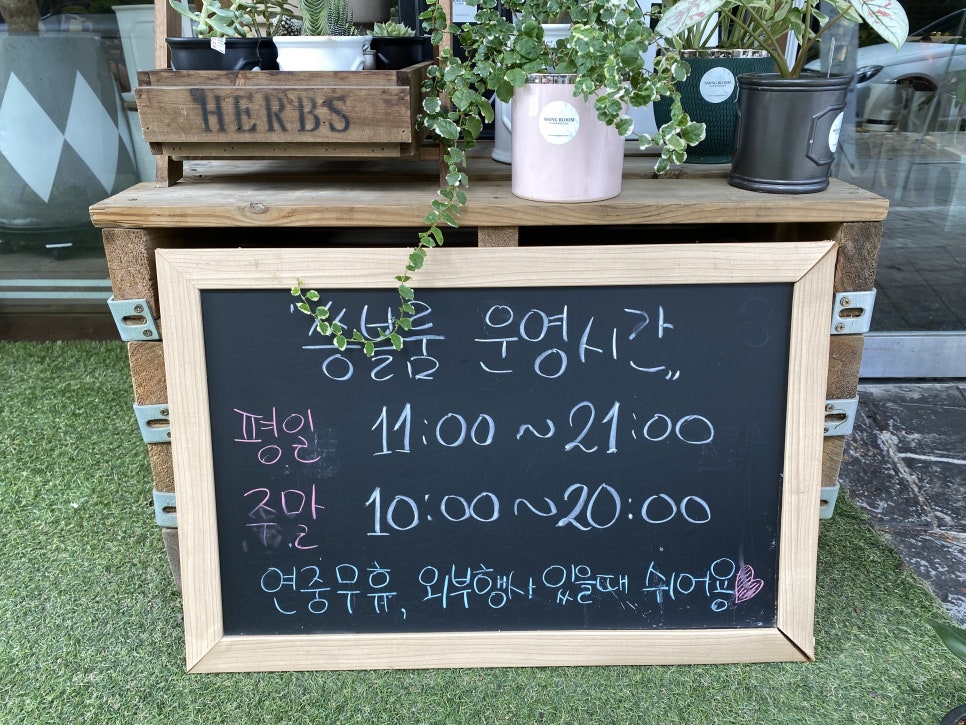 HERBS
쏭블룸 운영시간„
평일 11:00 ~ 21:00
주말 10:00 ~ 20:00
연중무휴, 외부행사 있을때 쉬어용